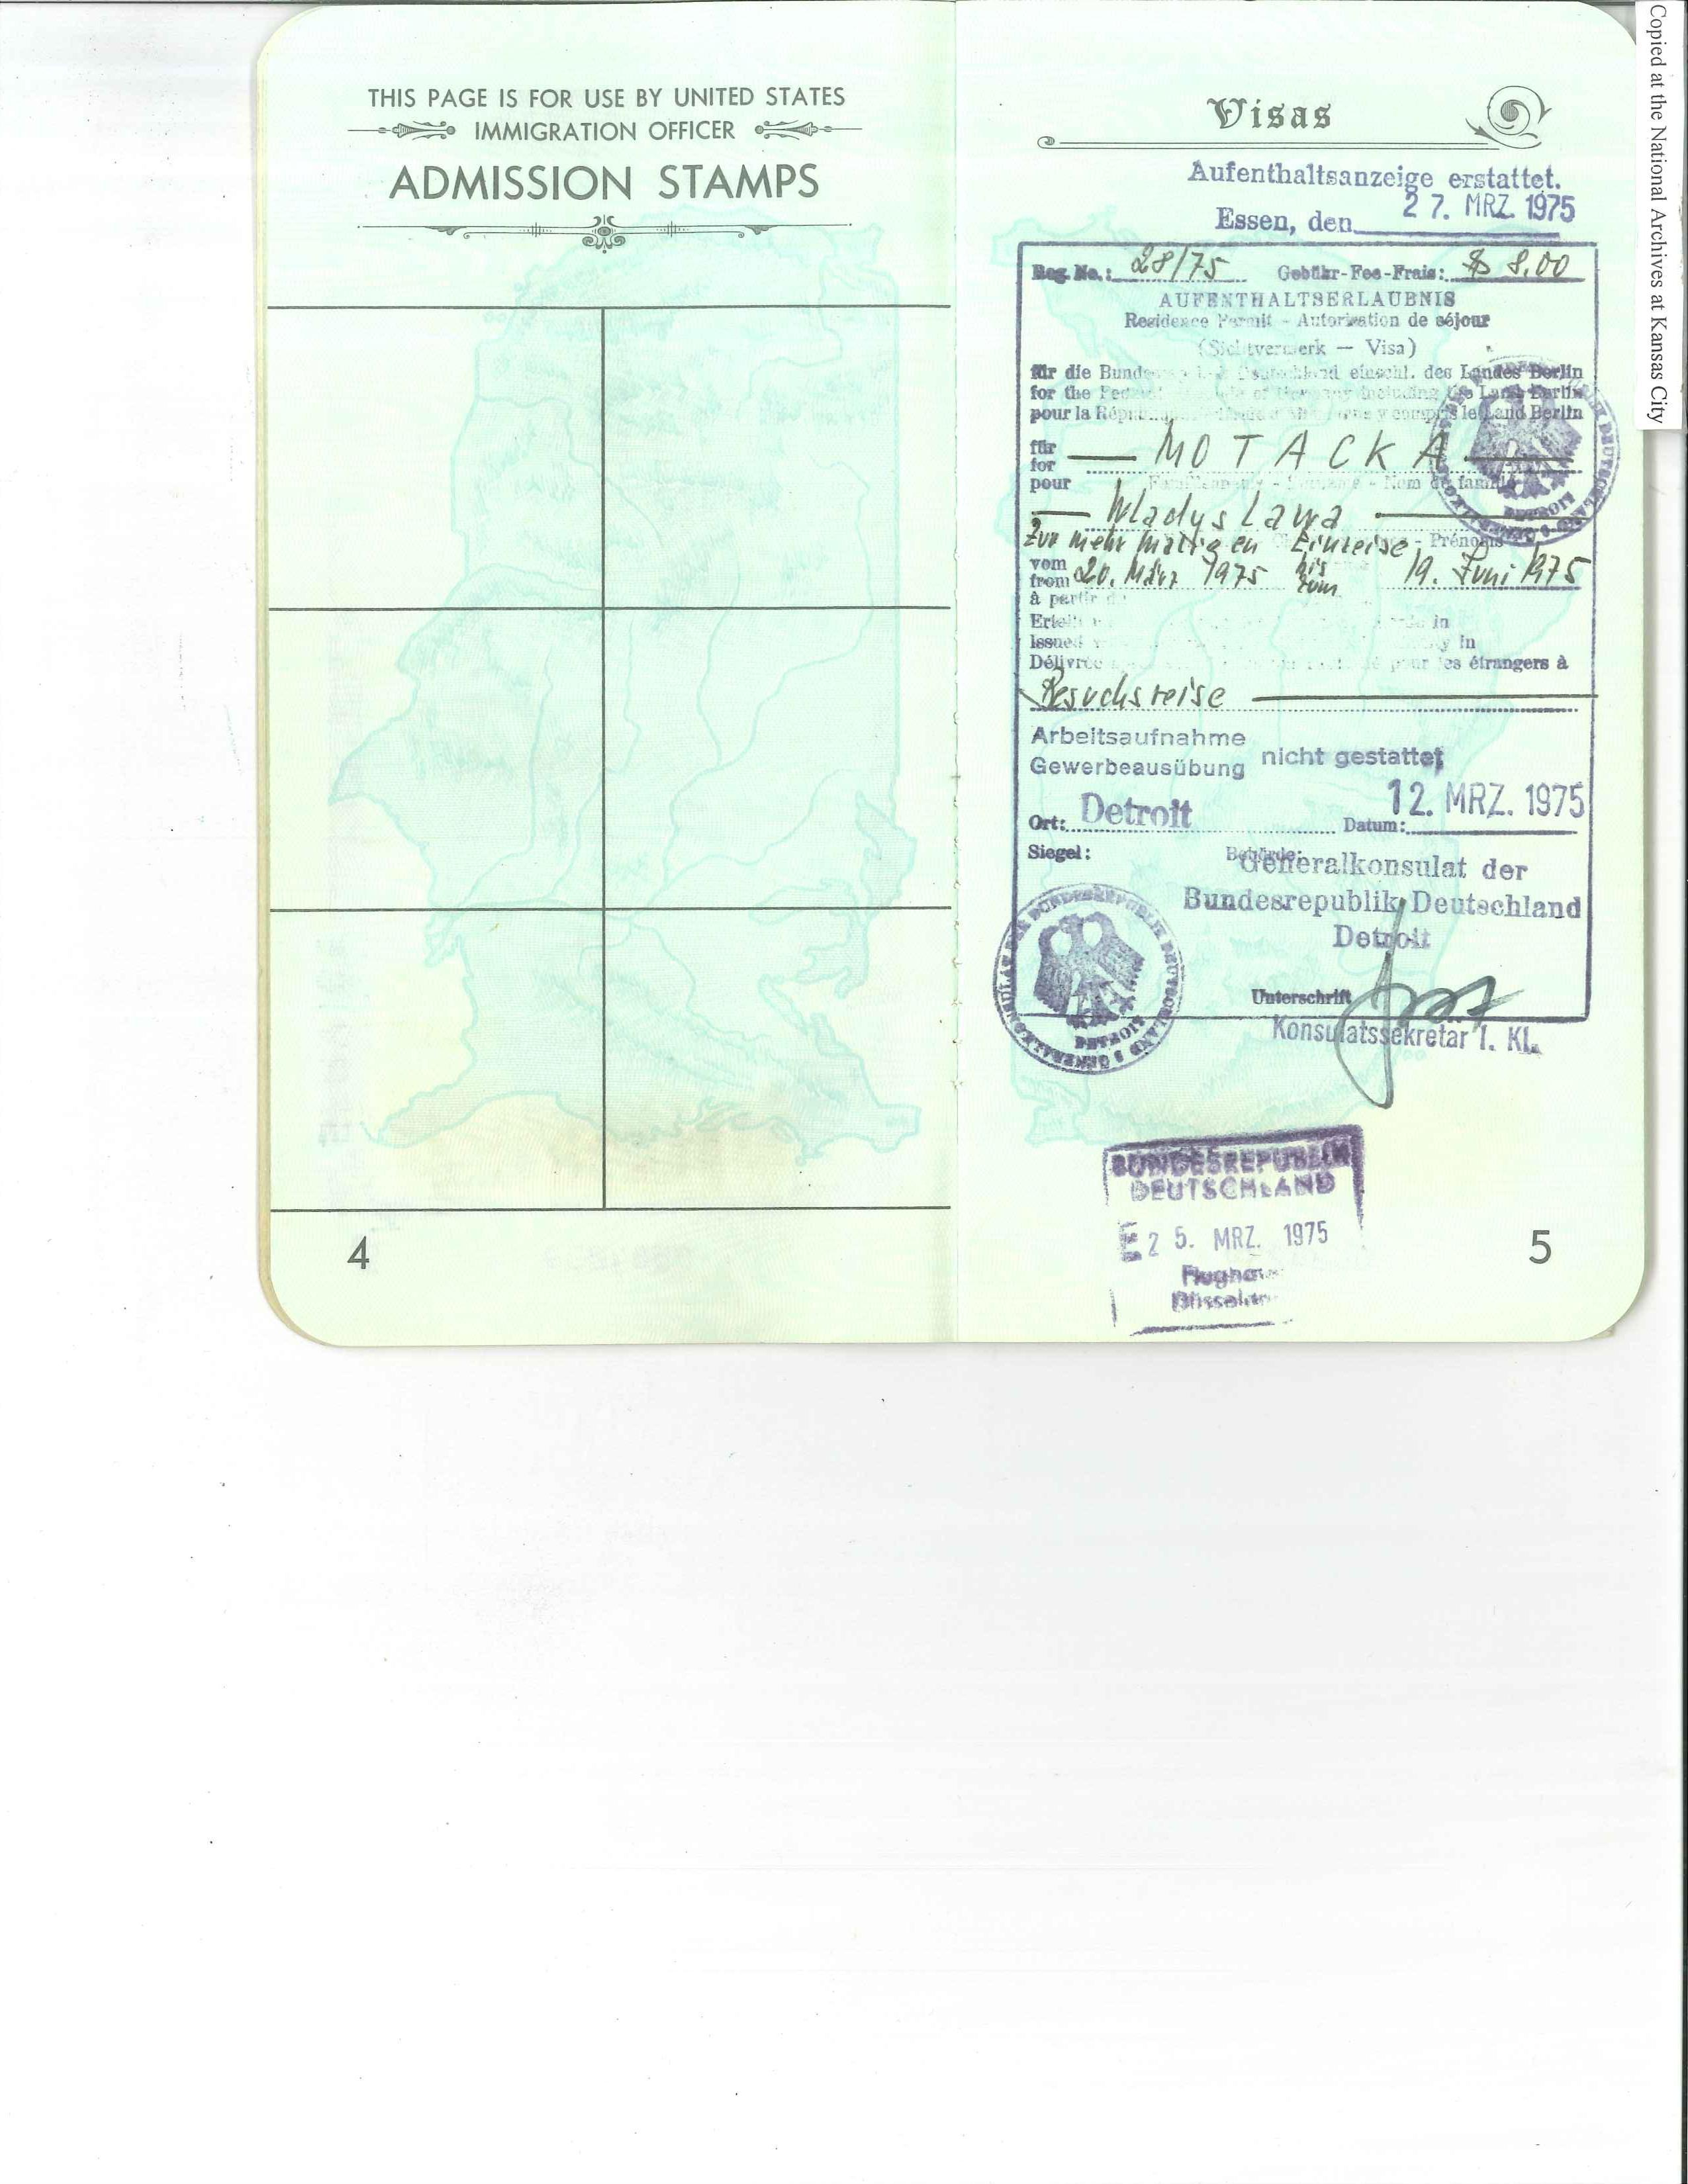 THIS PAGE IS FOR USE BY UNITED STATES
IMMIGRATION OFFICER
ADMISSION STAMPS
4
Visas
Aufenthaltsanzeige erstattet.
Essen, den 27. MRZ. 1975
Reg. No.: 28/75 Gebühr-Fee-Frais: $ 8,00
AUFENTHALTSERLAUBNIS
Residence Permit - Autorisation de séjour
(Sichtvermerk — Visa)
für die Deutschland einschl. des Landes Berlin
for the of Germany including the Land Berlin
pour la y compris le Land Berlin
für
for — MOTACKA —
pour - Nom de famille
— Wladyslawa —
Zur mehrmaligen Einreise, - Prénoms
vom
from 20. März 1975 bis zum 19. Juni 1975
à partir
in
Issued in
Délivrée pour les étrangers à
Besuchsreise —
Arbeitsaufnahme
Gewerbeausübung nicht gestattet
Ort: Detroit Datum: 12. MRZ. 1975
Siegel: Behörde:
Generalkonsulat der
Bundesrepublik Deutschland
Detroit
Unterschrift
Konsulatssekretär 1. Kl.
GENERALKONSULAT DER BUNDESREPUBLIK DEUTSCHLAND
DETROIT
BUNDESREPUBLIK
DEUTSCHLAND
E 25. MRZ. 1975
5
Copied at the National Archives at Kansas City